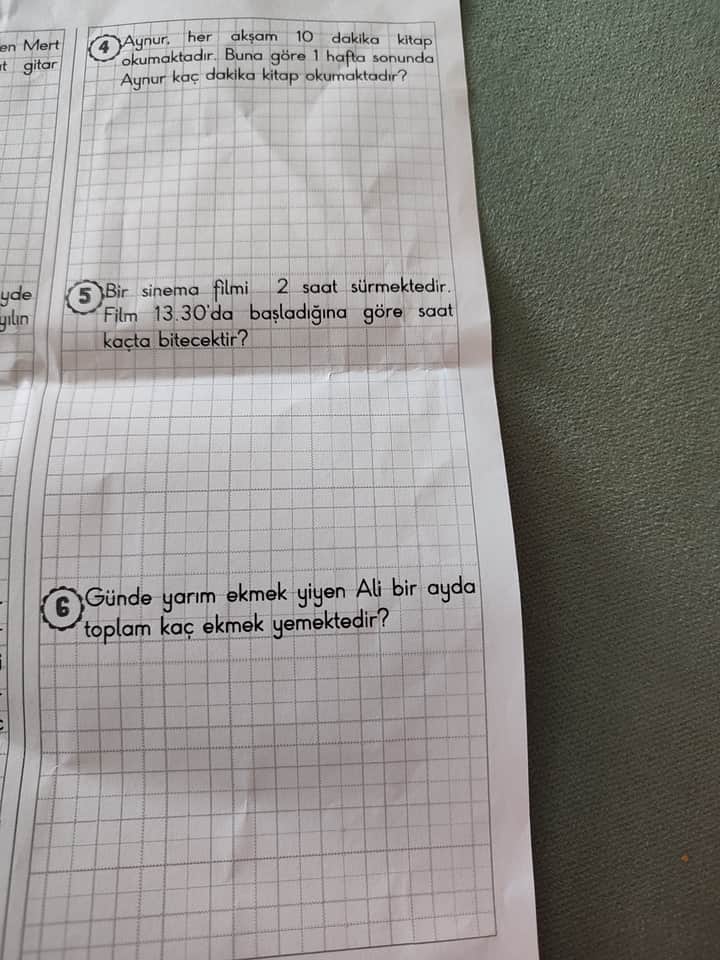 en Mert
t gitar
yde
yılın
4 Aynur, her akşam 10 dakika kitap
okumaktadır. Buna göre 1 hafta sonunda
Aynur kaç dakika kitap okumaktadır?
5 Bir sinema filmi 2 saat sürmektedir.
Film 13.30'da başladığına göre saat
kaçta bitecektir?
6 Günde yarım ekmek yiyen Ali bir ayda
toplam kaç ekmek yemektedir?